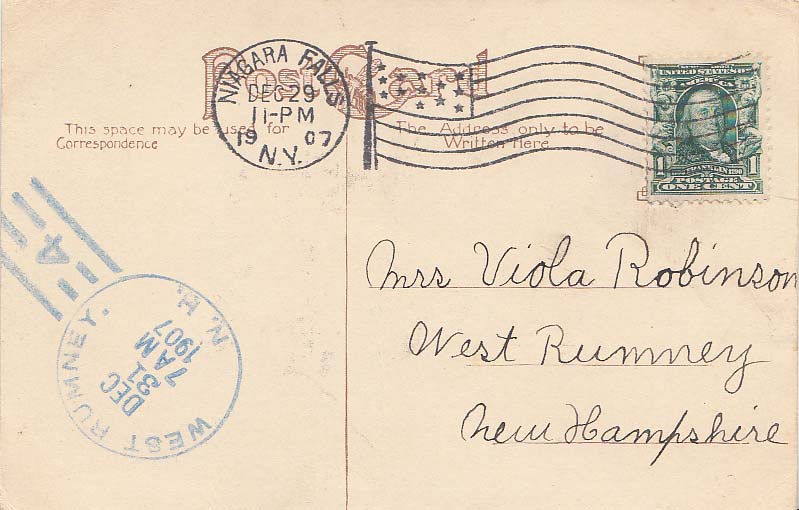 Post Card
This space may be used for
Correspondence
The Address only to be
Written Here
NIAGARA FALLS
DEC 29
11-PM
19 07
N.Y.
UNITED STATES OF
FRANKLIN 1790
1 POSTAGE 1
ONE CENT
Mrs Viola Robinson
West Rumney
New Hampshire
4
WEST RUMNEY. N.H.
DEC
31
7 AM
1907